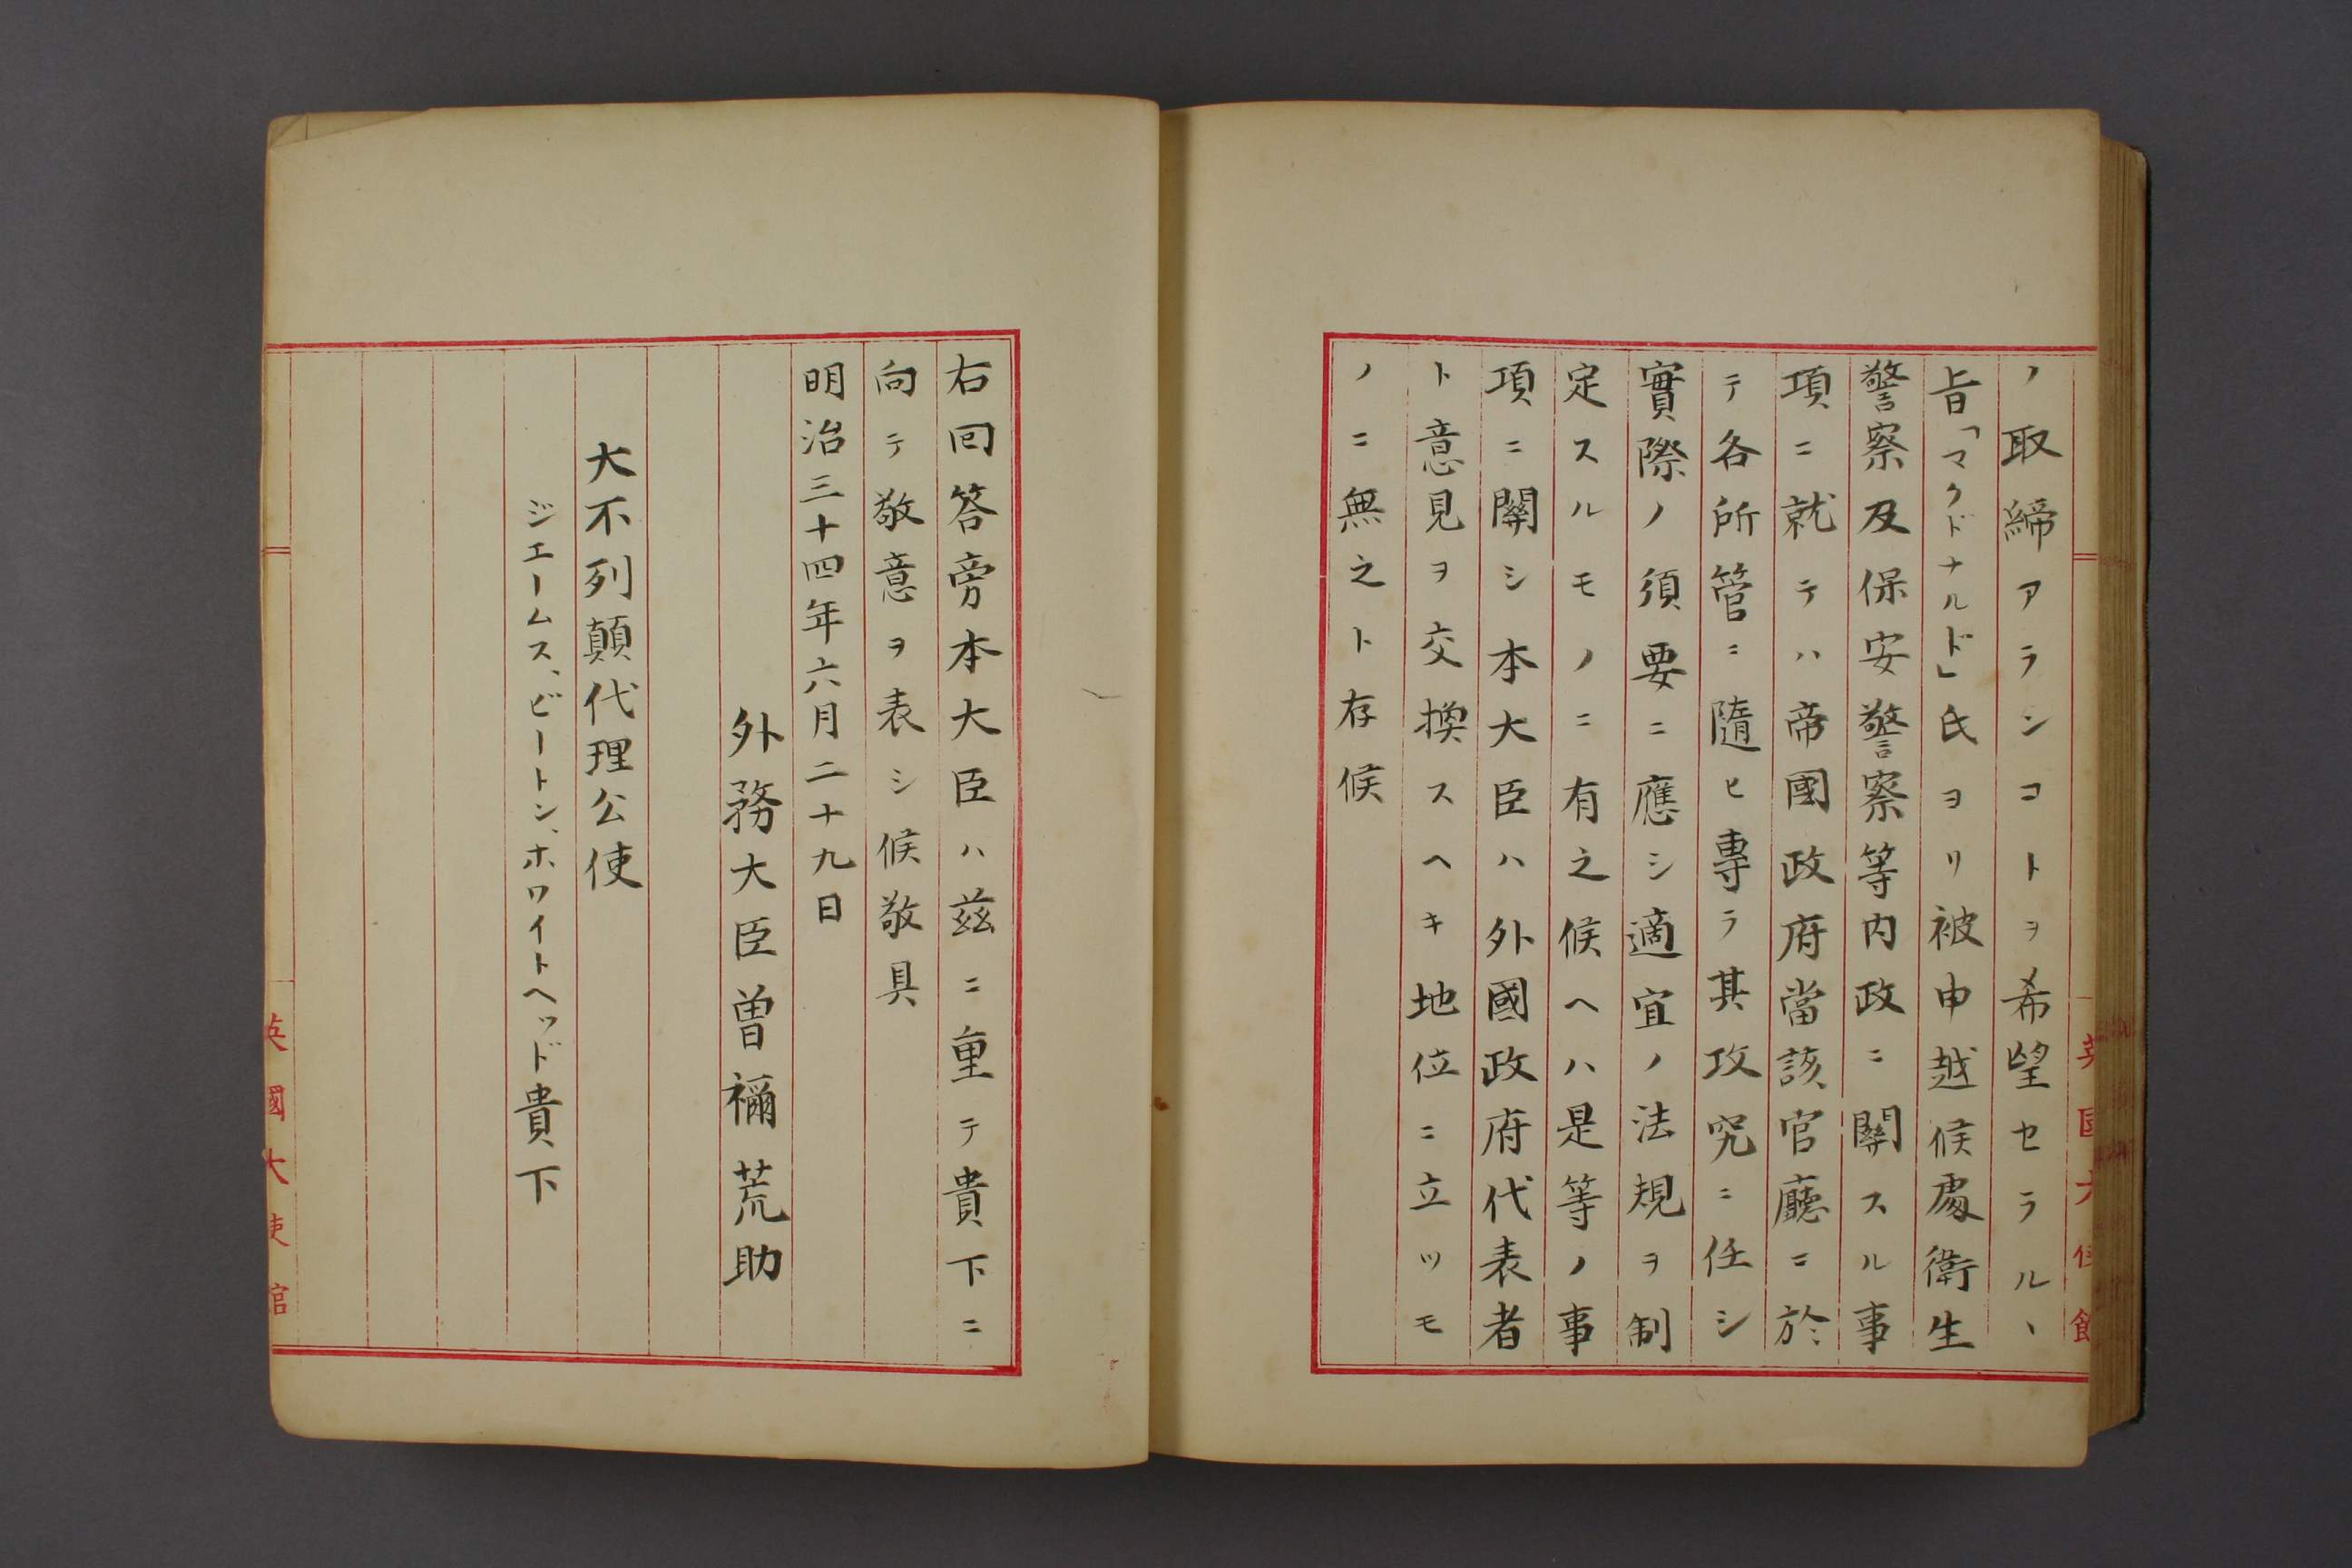 ノ取締アランコトヲ希望セラルヽ
旨「マクドナルド」氏ヨリ被申越候處衛生
警察及保安警察等内政ニ關スル事
項ニ就テハ帝國政府當該官廳ニ於
テ各所管ニ隨ヒ專ラ其攻究ニ任シ
實際ノ須要ニ應シ適宜ノ法規ヲ制
定スルモノニ有之候ヘハ是等ノ事
項ニ關シ本大臣ハ外國政府代表者
ト意見ヲ交換スヘキ地位ニ立ツモ
ノニ無之ト存候
英國大使館
右回答旁本大臣ハ茲ニ重テ貴下ニ
向テ敬意ヲ表シ候敬具
明治三十四年六月二十九日
外務大臣曽禰荒助
大不列顛代理公使
ジエームス、ビートン、ホワイトヘッド貴下
英國大使館